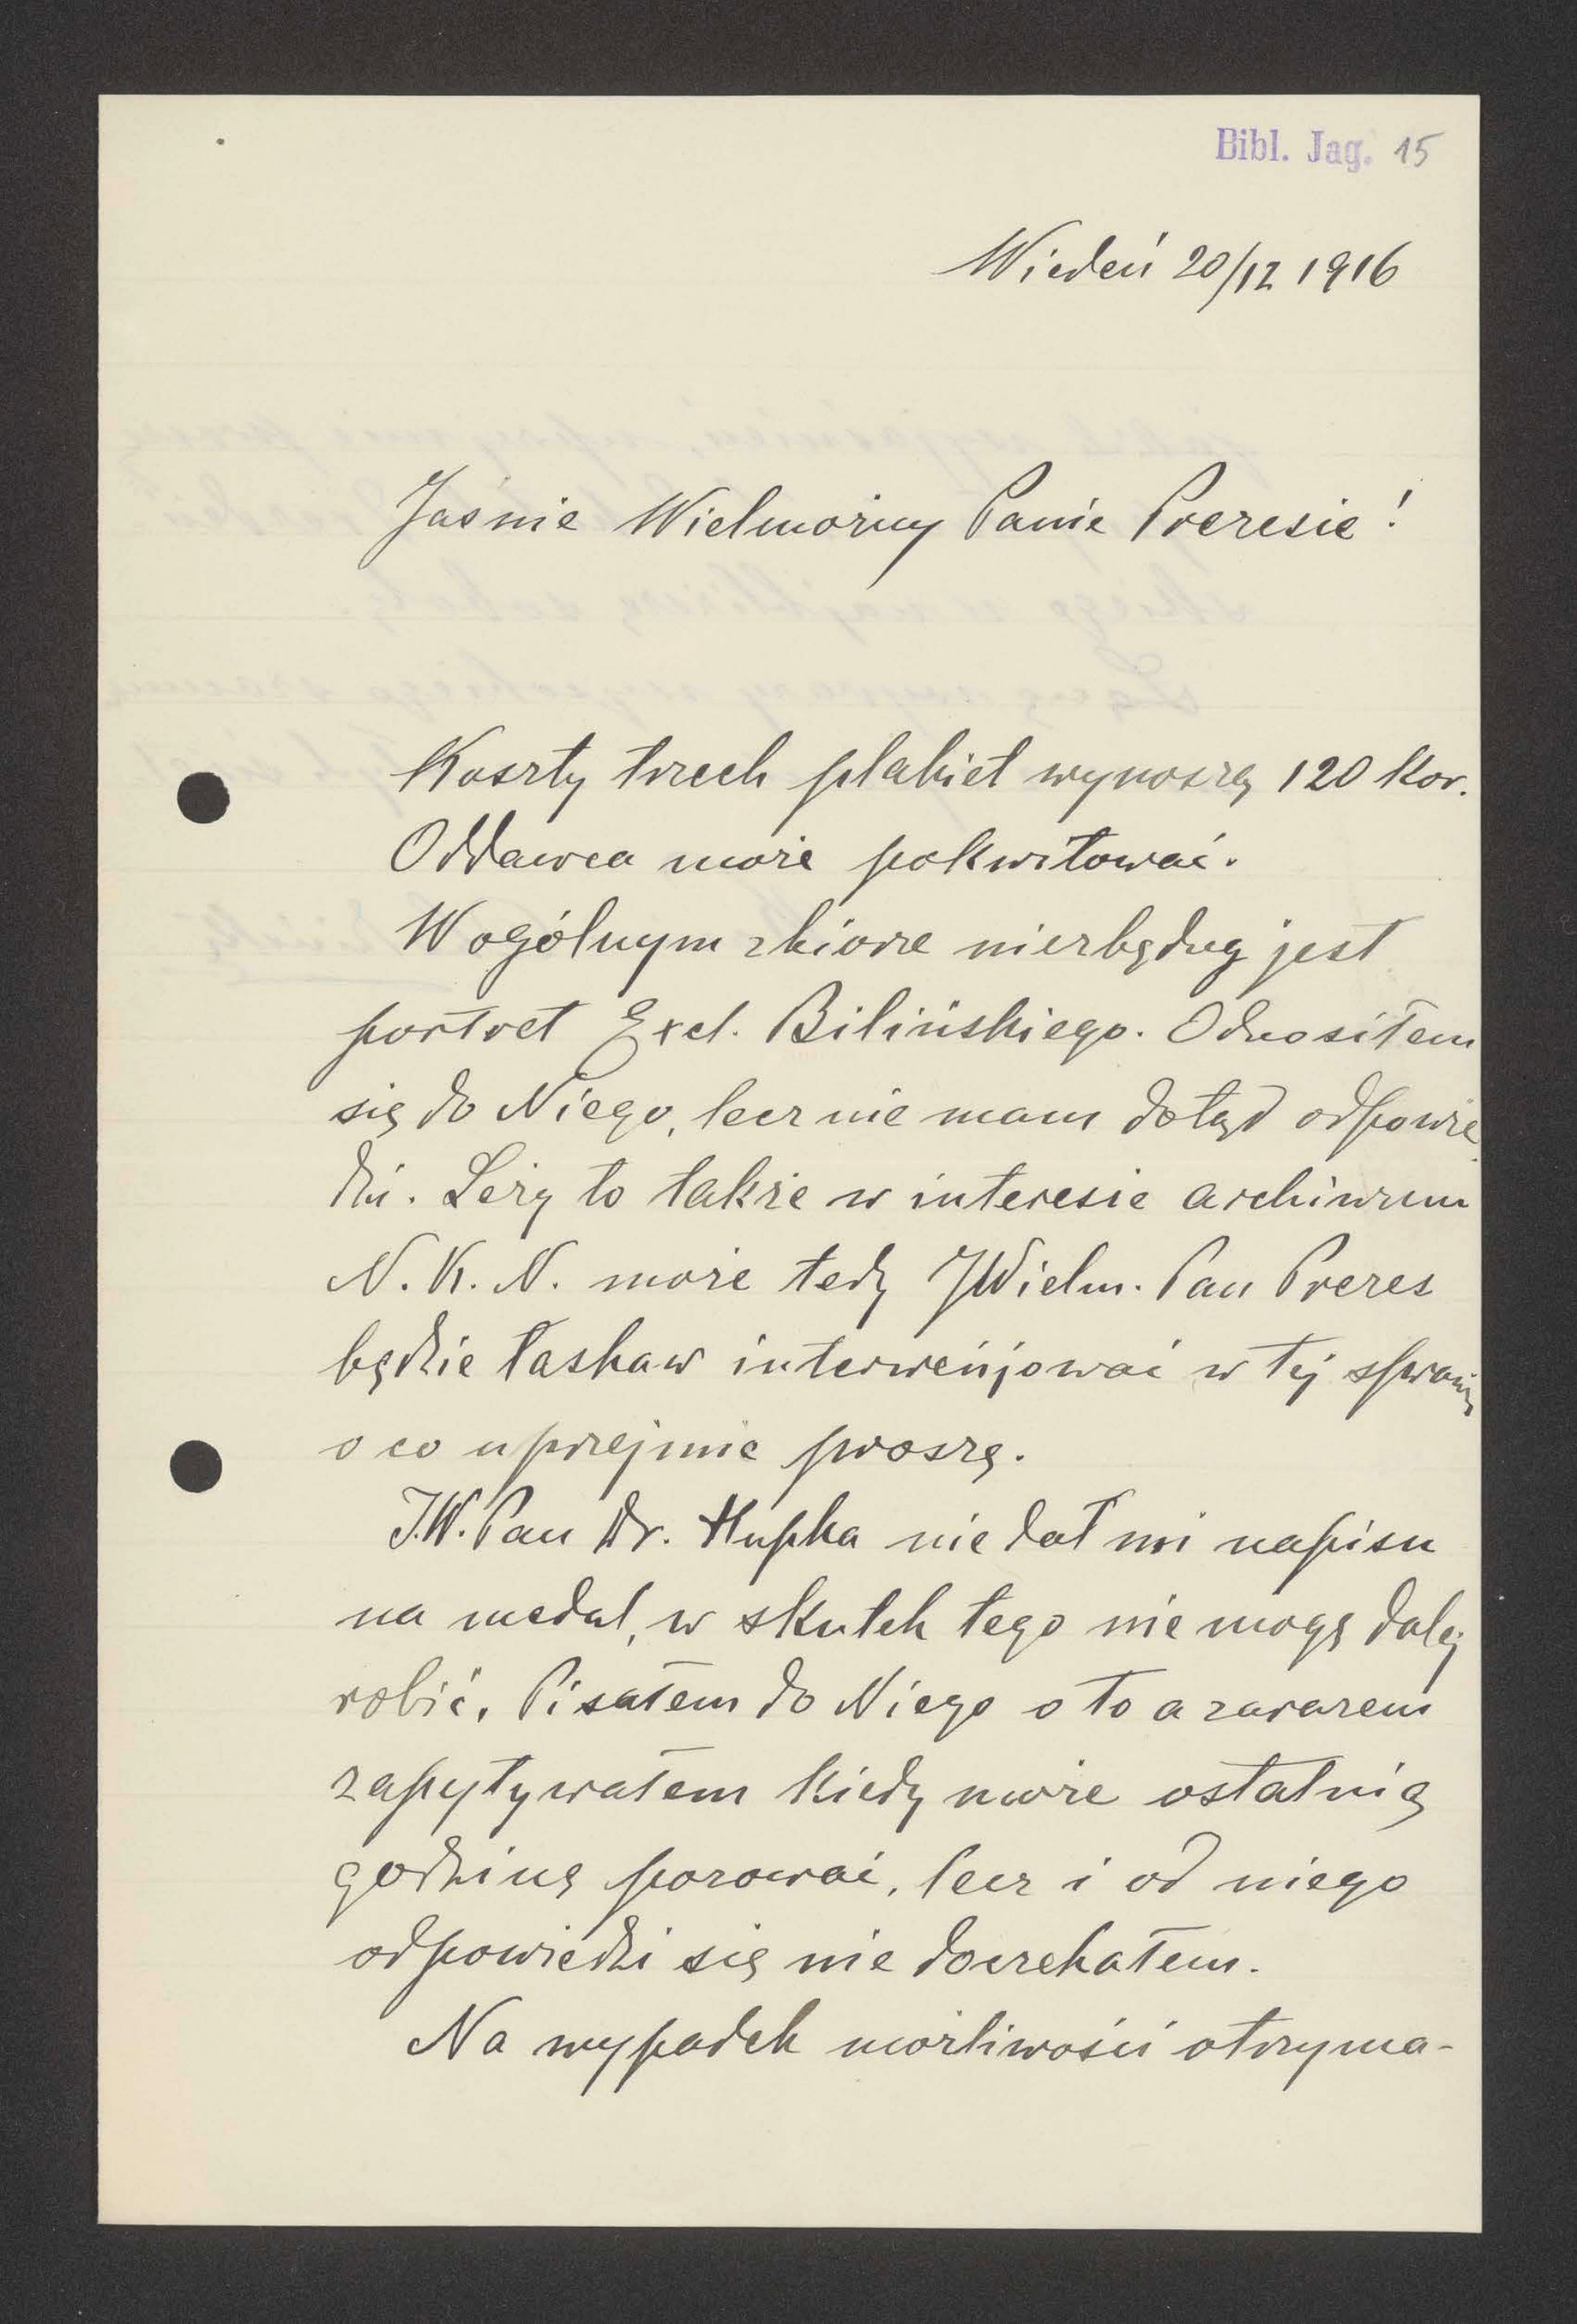 Bibl. Jag. 15
Wiedeń 20/12 1916
Jaśnie Wielmożny Panie Prezesie!
Koszty trzech plakiet wynoszą 120 Kor.
Oddawca może pokwitować.
W ogólnym zbiorze niezbędny jest
portret Excl. Bilińskiego. Odnosiłem
się do Niego, lecz nie mam dotąd odpowie
dzi. Leży to także w interesie archiwum
N. K. N. może tedy JWielm. Pan Prezes
będzie łaskaw interwenjować w tej sprawie
o co uprzejmie proszę.
J.W. Pan Dr. Hupka nie dał mi napisu
na medal, w skutek tego nie mogę dalej
robić. Pisałem do Niego o to a zarazem
zapytywałem kiedy może ostatnią
godzinę pozować, lecz i od niego
odpowiedzi się nie doczekałem.
Na wypadek możliwości otrzyma-